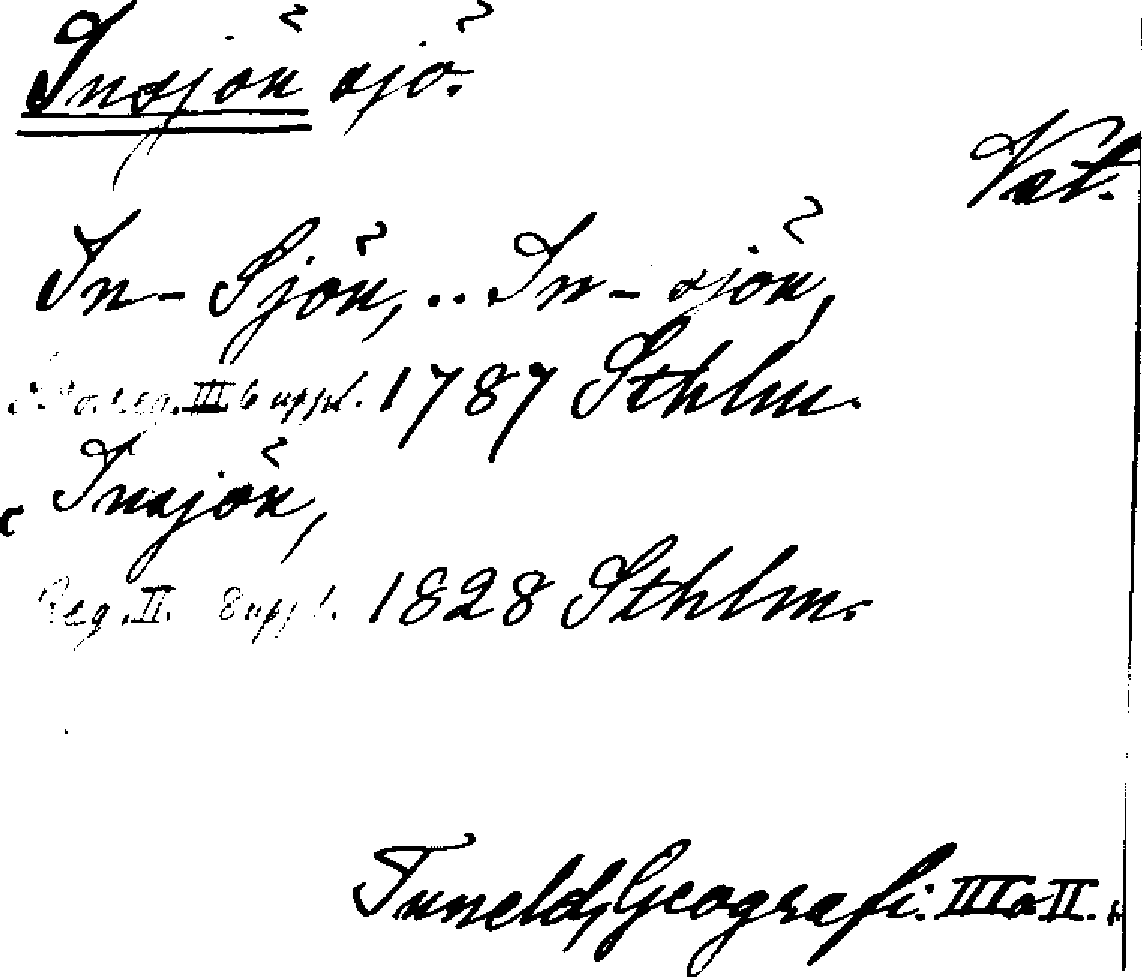 Insjön sjö.
Nat.
In-Sjön, .. In-sjön,
III 6 uppl. 1787 Sthlm.
Insjön,
Reg. II. 8 uppl. 1828 Sthlm.
Tuneld, Geografi. III o II.